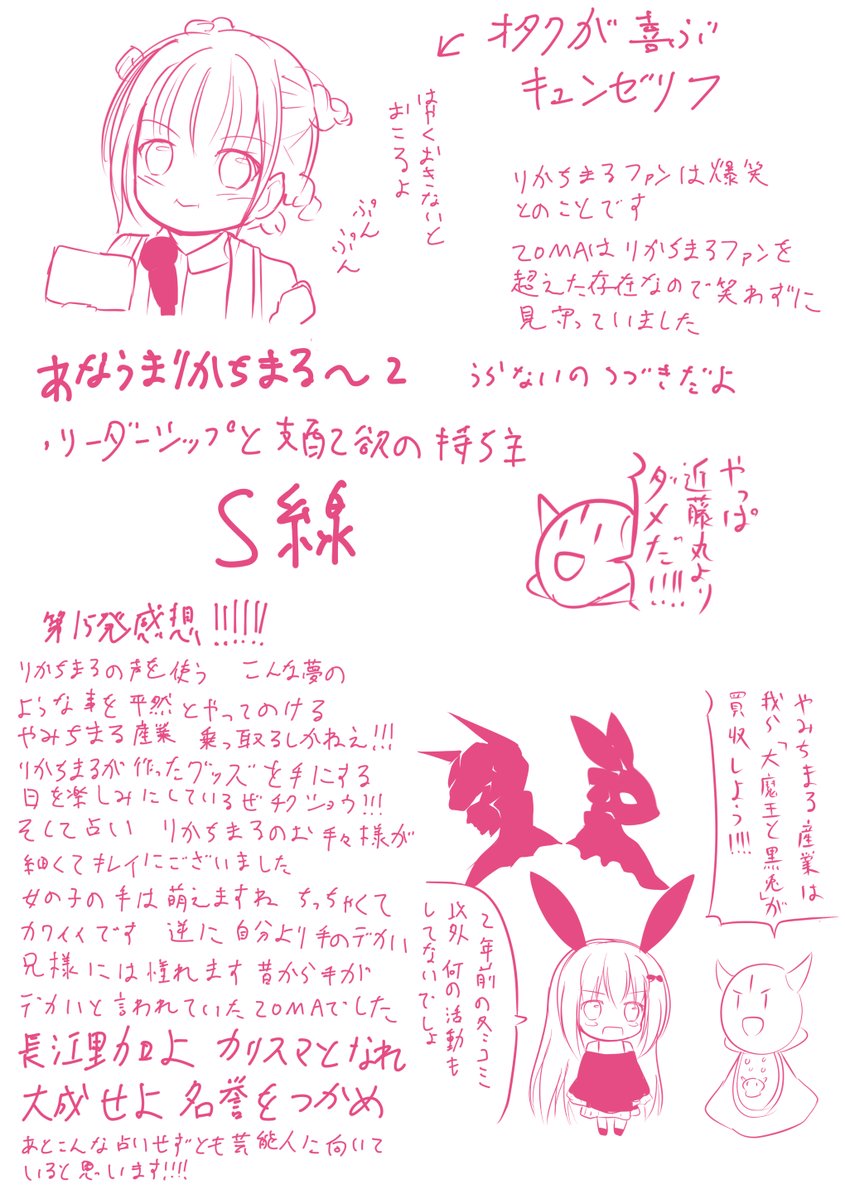 オタクが喜ぶ
キュンゼリフ
はやくおきないと
おこるよ
ぷん
ぷん
りかちまるファンは爆笑
とのことです
ZOMAはりかちまるファンを
超えた存在なので笑わずに
見守っていました
あなうまりかちまる〜2
うらないのつづきだよ
・リーダーシップと支配欲の持ち主
S線
やっぱ
近藤丸より
ダメだ!!!!
第15発感想!!!!!!
りかちまるの声を使う こんな夢の
ような事を平然とやってのける
やみちまる産業 乗っ取るしかねえ!!!
りかちまるが作ったグッズを手にする
日を楽しみにしているぜチクショウ!!!
そして占い りかちまるのお手々様が
細くてキレイにございました
女の子の手は萌えますね ちっちゃくて
カワイイです 逆に自分より手のデカい
兄様には憧れます昔から手が
デカいと言われていたZOMAでした
長江里加よ カリスマとなれ
大成せよ 名誉をつかめ
あとこんな占いせずとも芸能人に向いて
いると思います!!!!
やみちまる産業は
我ら「大魔王と黒兎」が
買収しよう!!!!
2年前の冬コミ
以外 何の活動も
してないでしょ